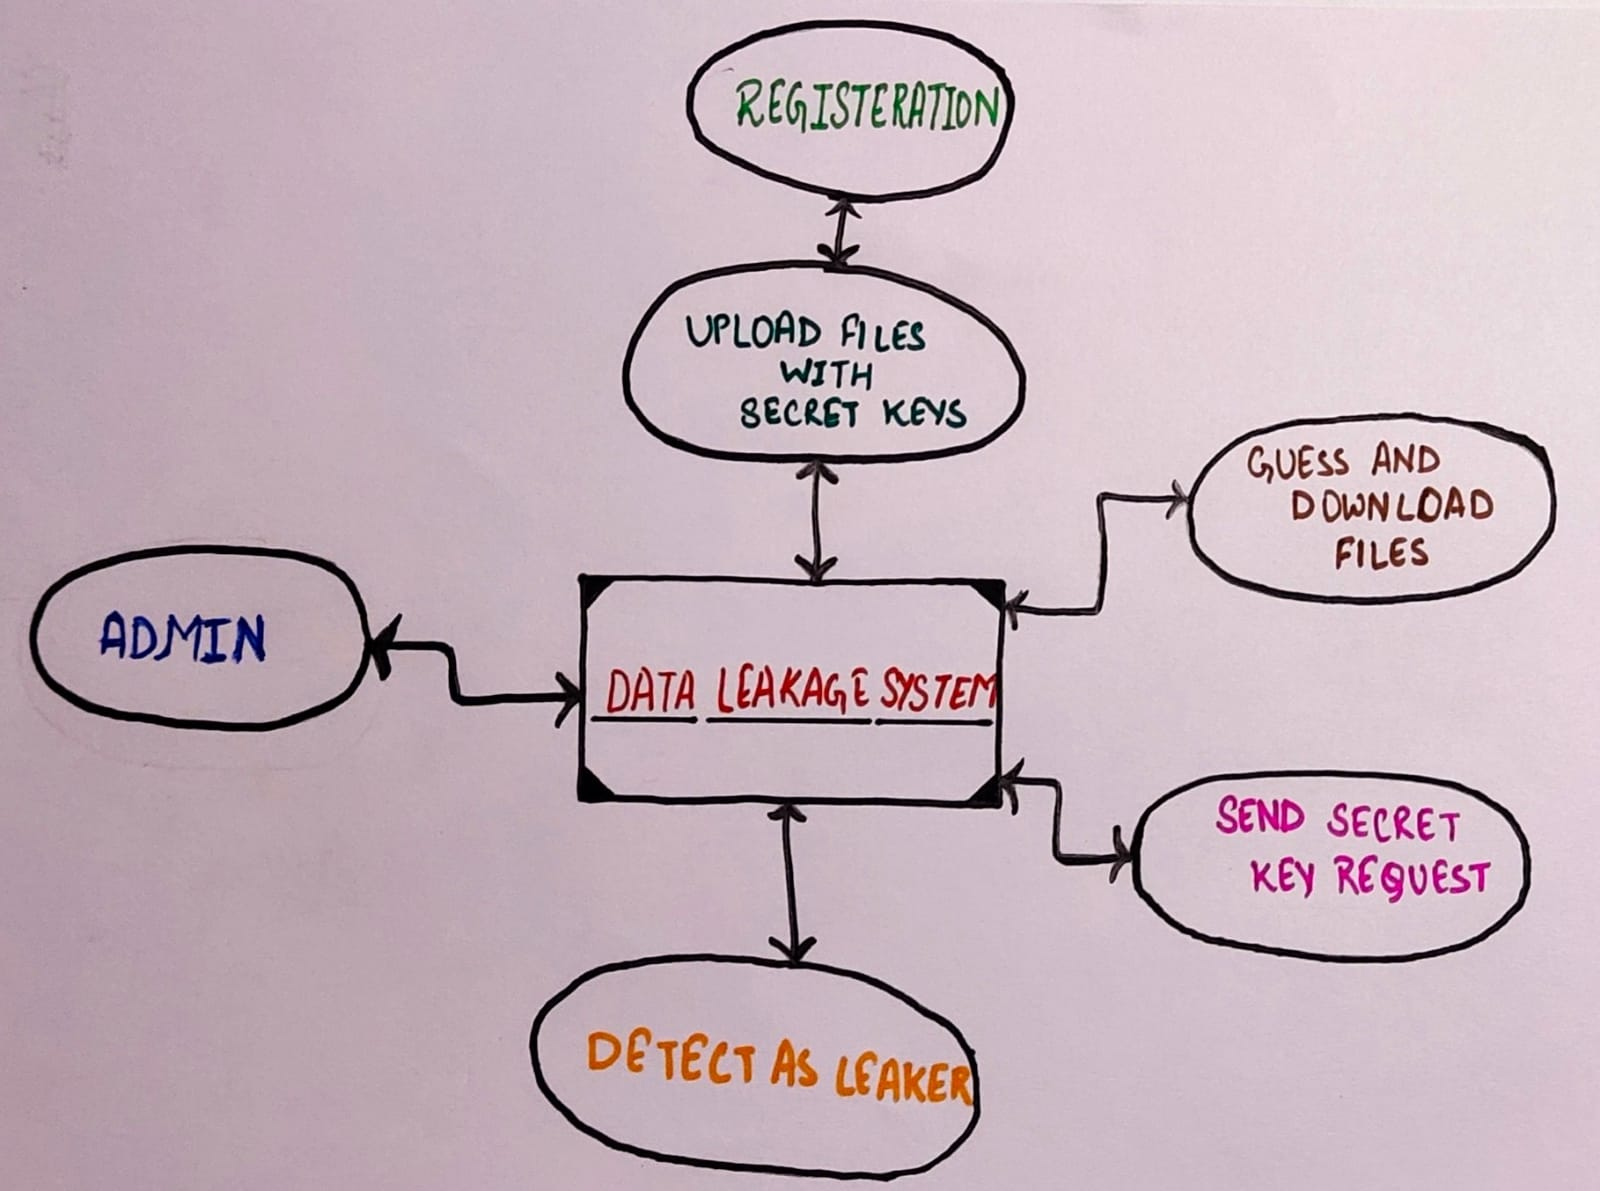 REGISTERATION
UPLOAD FILES
WITH
SECRET KEYS
GUESS AND
DOWNLOAD
FILES
ADMIN
DATA LEAKAGE SYSTEM
SEND SECRET
KEY REQUEST
DETECT AS LEAKER